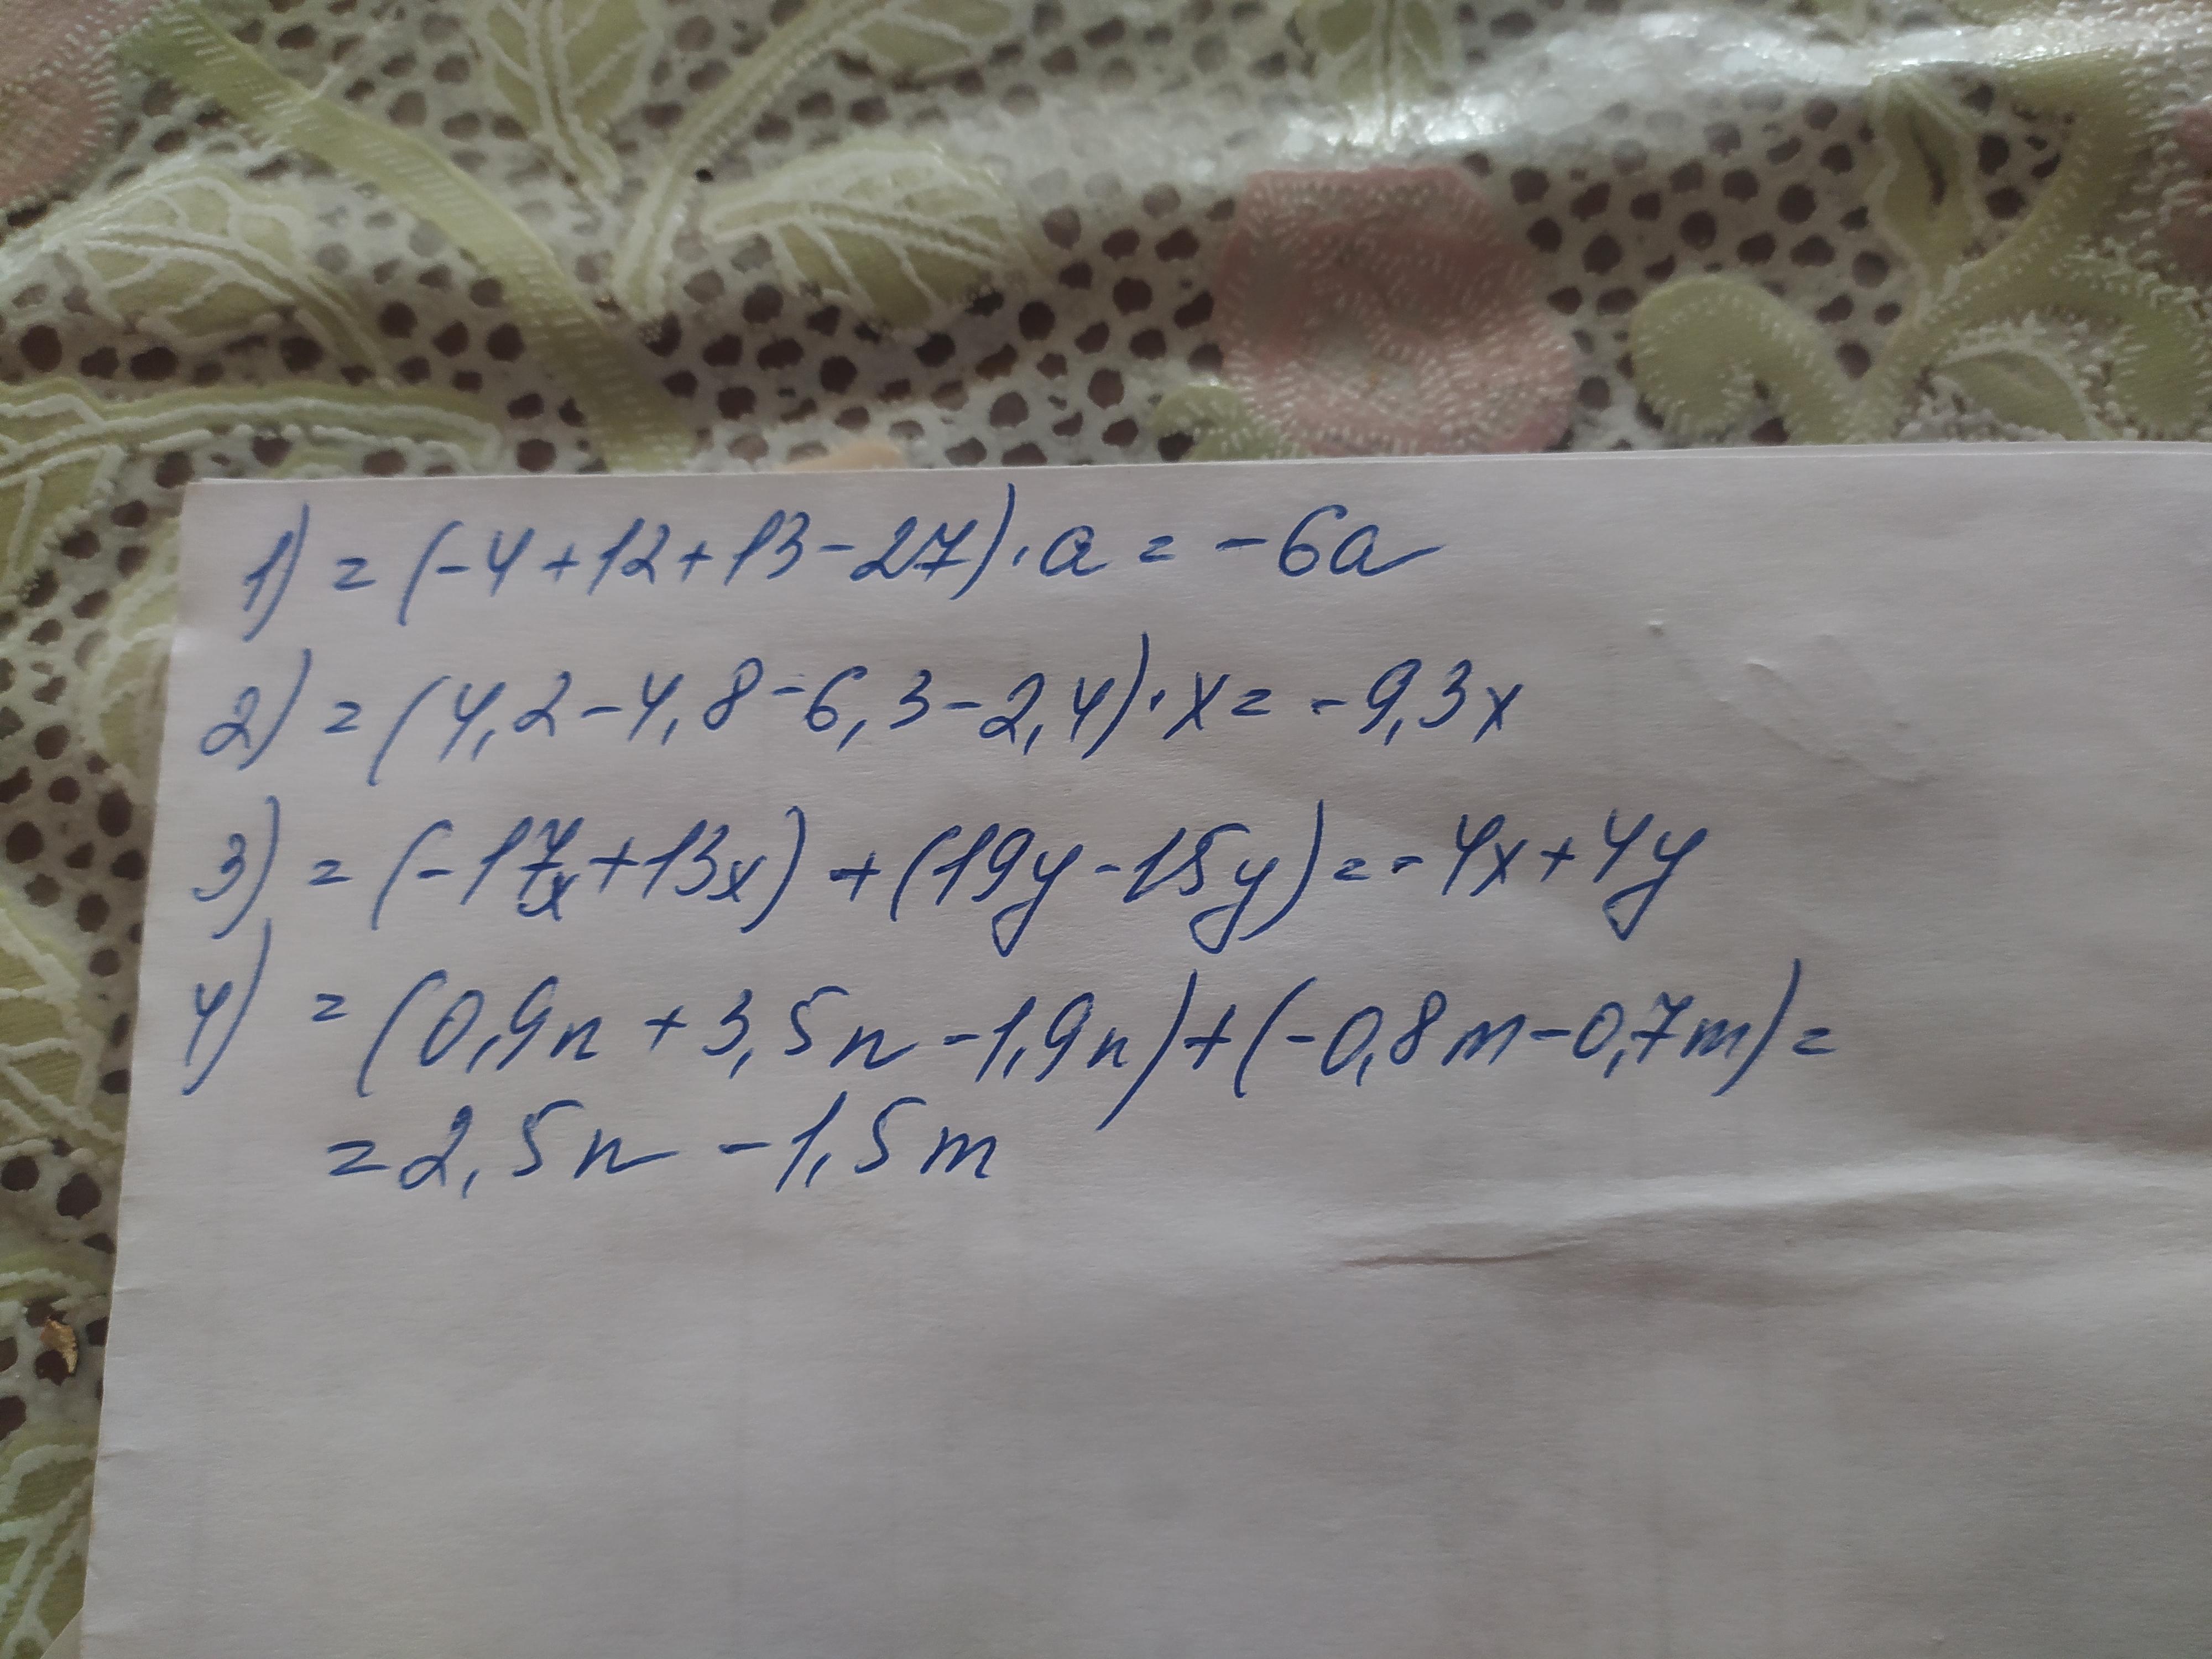 1) = (-4+12+13-27)·a = -6a
2) = (4,2-4,8-6,3-2,4)·x = -9,3x
3) = (-17x+13x)+(19y-15y) = -4x+4y
4) = (0,9n+3,5n-1,9n)+(-0,8m-0,7m) =
= 2,5n-1,5m